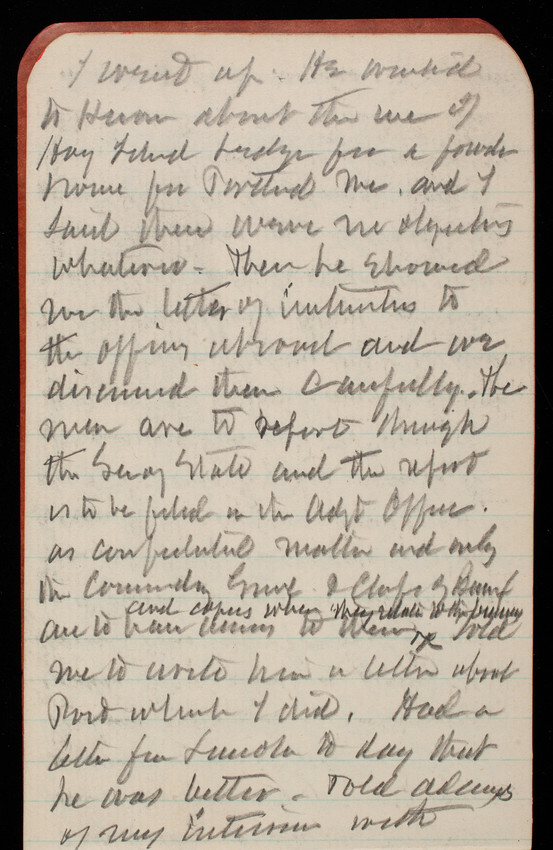 I went up. He wanted
to know about the use of
Hog Island Ledge for a powder
house for Portland Me. and I
said there were no objections
whatever. Then he showed
me the letter of instructions to
the officers abroad and we
discussed them carefully. The
men are to report through
the Secy State and the report
is to be filed in the Adjt Office.
as confidential matter and only
the Commndg Genl & Chfs of Bureau
and copies when they relate to the bureaus
are to have access to them Told
me to write him a letter about
which I did. Had a
letter from Lincoln to day that
he was better. Told Adams
of my interview with